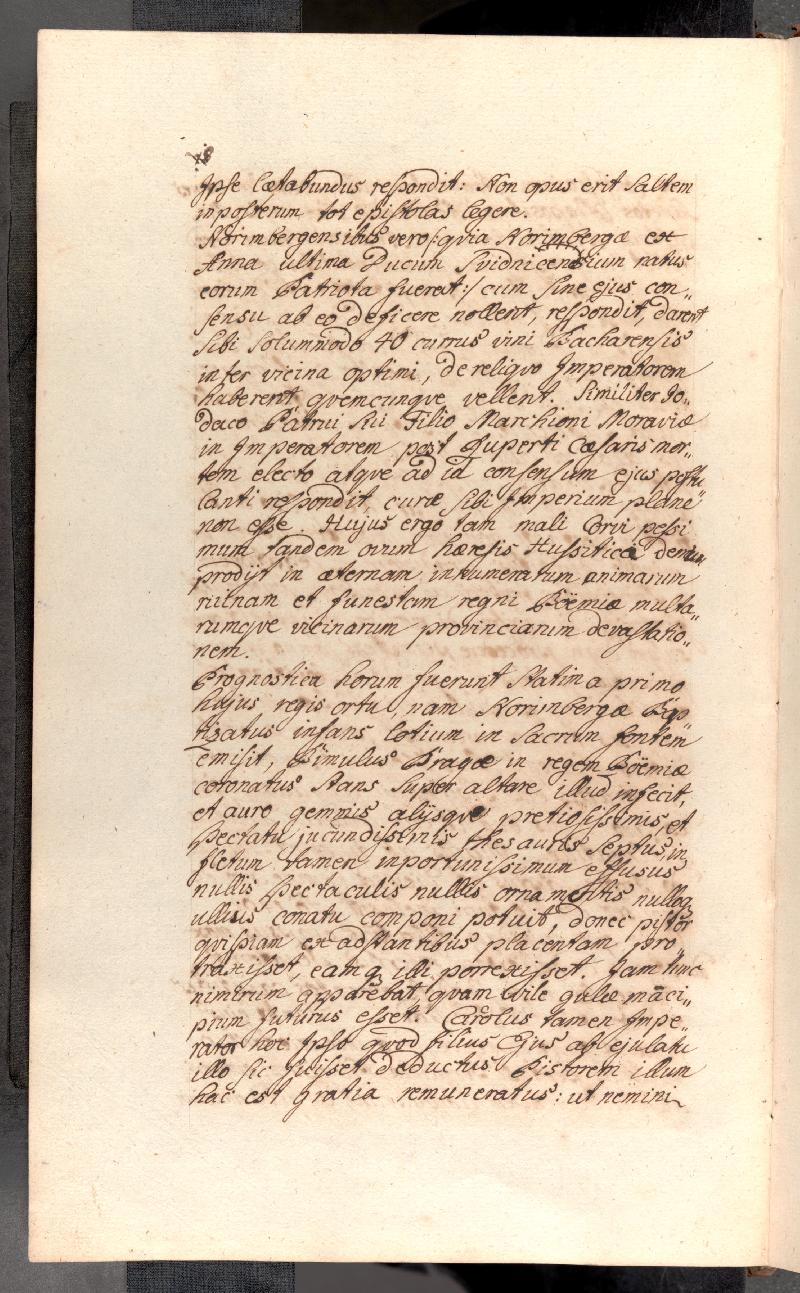 Ipse lætabundus respondit: Non opus erit saltem
in posterum tot epistolas legere.
Norimbergensibus vero /: qvia Norimbergæ ex
Anna ultima Ducum Svidnicensium natus
eorum Patriota fuerat :/ cum sine ejus con„
sensu ab eo deficere nollent, respondit, darent
sibi solummodo 40 currus vini Bacharensis
inter vicina optimi, de reliqvo Imperatorem
haberent qvemcunqve vellent. Similiter Jo„
doco Patrui sui Filio Marchioni Moraviæ
in Imperatorem post Ruperti Cæsaris mor„
tem electo atqve ad id consensum ejus postu
lanti respondit, curæ sibi Imperium plane
non esse. Hujus ergo tam mali Corvi pessi
mum tandem ovum hæresis Hussiticæ
prodijt in æternam innumeratum animarum
ruinam et funestam regni Boëmiæ multa„
rumqve vicinarum provinciarum devastatio„
nem.
Prognostica horum fuerunt statim a primo
hujus regis ortu, nam Norimbergæ Bap
tizatus infans lotium in sacrum fontem
emisit, Bimulus Pragæ in regem Boëmiæ
coronatus stans super altare illud infecit,
et auro gemmis alijsqve pretiosissimis et
spectatu jucundissimis thesauris septus, in
fletum tamen inportunissimum effusus
nullis spectaculis nullis ornamentis nulloq
ullius conatu componi potuit, donec pistor
qvispiam ex adstantibus placentam pro
traxisset, eamq illi porrexisset. Jam tunc
nimirum apparebat, qvam vile gulæ māci„
pium futurus esset. Carolus tamen Impe„
rator hoc Ipso qvod filius Ejus ab ejulatu
illo sic fuisset deductus Pistorem illum
hac est gratia remuneratus: ut nemini